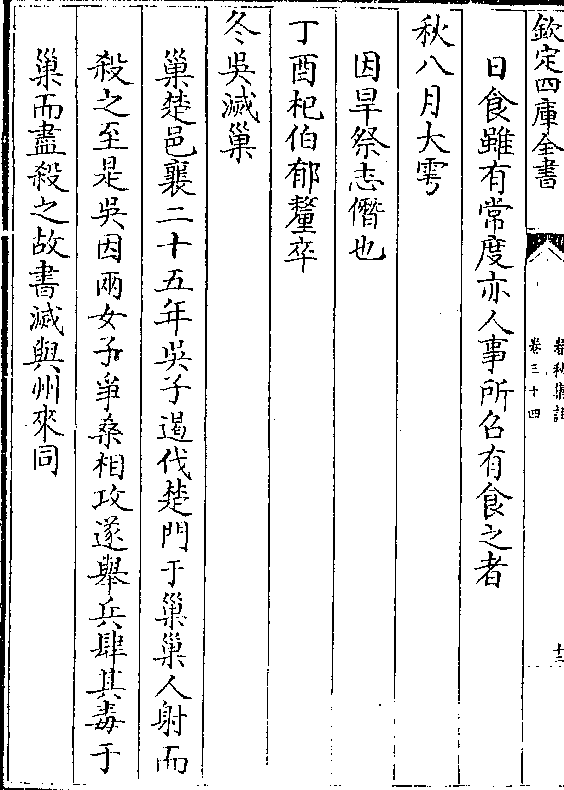 欽定四庫全書
春秋集註
卷三十四
十三
日食雖有常度亦人事所召有食之者
秋八月大雩
因旱祭志僭也
丁酉杞伯郁釐卒
冬吳滅巢
巢楚邑襄二十五年吳子遏伐楚門于巢巢人射而
殺之至是吳因兩女子爭桑相攻遂舉兵肆其毒于
巢而盡殺之故書滅與州來同